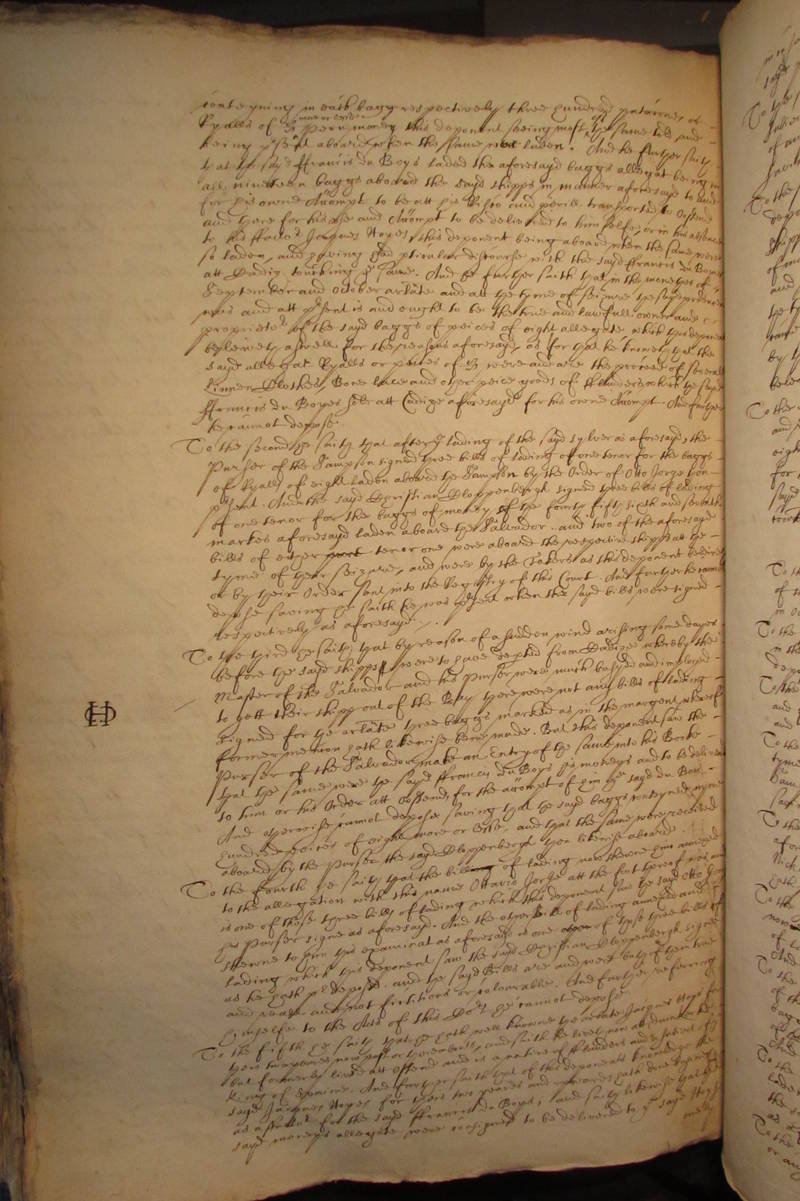 conteyning in each bagg respectively three hundred patacons or
Ryalls of 8 peru money this deponent seeing most of the same told and
being present aboard when the same were laden. And he further saith
that the sayd ffrancis du Boys laded the aforesayd baggs allegat being in
all nineteen baggs aboard the sayd shipps in manner aforesayd to and
for his owne Accompt to be att his Risio and perill transported to Ostend
and there for his use and Accompt to be delivered to himselfe, or in his absence
to his ffactor Jaques Hoyes, this deponent being aboard when the same were
so laden, and having had pticular discourse with the sayd ffrancis du Boys
att Cadiz touching the same. And he further saith that in the monethes of
September and October arlate and att the tyme of seizure the sayd producent
was and att present is and ought to be the true and lawfull owner and
proprietor of the sayd baggs of peices of eight allegate, which this deponent
beleiveth aswell for the reasons aforesayd, as for that he knoweth that the
sayd allegat Ryalls or peices of 8 were and are the proceed of severall
Linnen Clothes, Bone lace and other peice goods of fflanders which the sayd
ffrancis du Boyes sold att Cadize aforesayd for his owne Accompt. And further
he cannot depose.
To the second he saith that after the lading of the sayd sylver as aforesayd, the
Purser of the Sampson signed three bills of lading of one tenor for the baggs
of Ryalls of eight laden aboard the Sampson by the Order of Otto Jorge hon
present. And the sayd Christian Cloppenbergh signed three bills of lading
of one tenor for the baggs of money of the fourth fifth sixth and seventh
markes aforesayd laden aboard the Salvador. and two of the aforesayd
bills of either tenor one were aboard the respective shipps att the
tyme of their seizure, and were by the Takers as this deponent beleives
or by their Order sent into the Registry of this Court. And further he cannot
depose saving he saith he was present when the sayd bills were signed
respectively as aforesayd.
To the third he saith that by reason of a sudden wind arising some dayes
before the sayd shipps were to have depted from Cadize whereby the
Master of the Salvador and his purser were much busyed and imployed
to gett their shipp out of the Bay there were not any bills of lading
signed for the arlate three baggs marked as in the margent whereof
former mention hath likewise bene made. But this deponent saw the
Purser of the Salvador make an Entry of the same into his Booke
that the same were the sayd ffrancis du Boys his moneys and to be delivered
to him or his Order att Ostend, for the accompt of him the sayd du Boys.
And otherwise cannot depose saving that the sayd baggs conteyned nyne
hundred peices of eight more or lesse, and that the same were received
aboard by the Purser the sayd Cloppenbergh then likewise aboard.
To the fourth he saith that the bill of lading now shewne him annexed
to the allegation with this name Ottavio Jorge att the foot thereof
is one of those three bills of lading which this deponent saw the sayd Otto Jorge
the Purser signe as aforesayd. And the other bill of lading annexed and
shewne to him this examinat as aforesaid is one of those three bills of
lading which this deponent saw the sayd Christian Cloppenbergh signe
as he hath pr deposed. and the sayd Bills are and were both of them true
and reall and not fictitious or colourable. And further referring
himselfe to the Acts of this Court he cannot depose.
To the fifth he saith that he hath well knowne the arlate Jaques Hoys for
but formerly lived att Ostend and is a native of fflanders and a subject of the
King of Spaine. And further saith that of this deponents knowledge the
sayd Jaques Hoyes for theis two yeares and upwards hath done
as a ffactor for the sayd ffrancis du Boys, and saith likewise that the
sayd moneys allegate were consigned to be delivered to the sayd Hoyes